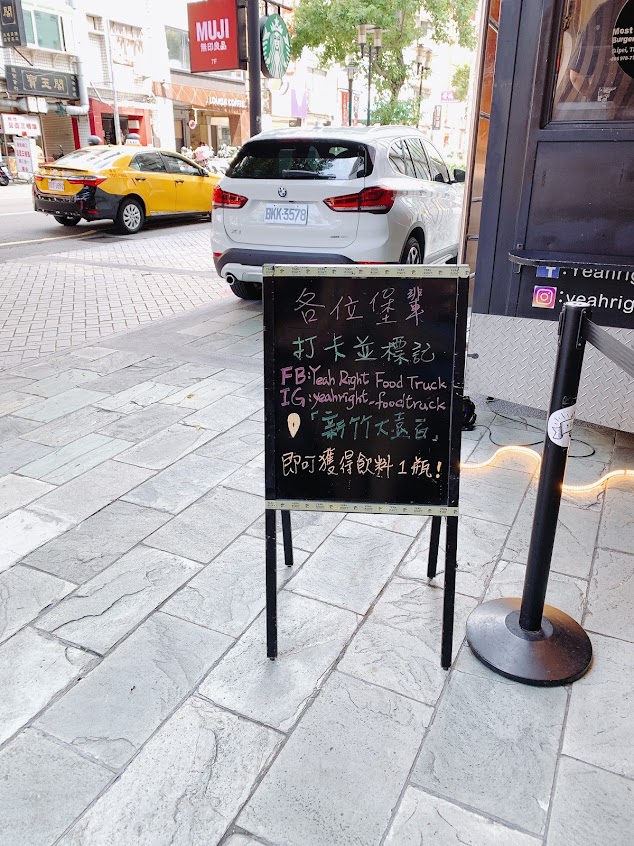 MUJI
無印良品
7F
LOUISA COFFEE
BKK-3578
各位堡輩
打卡並標記
FB:Yeah Right Food Truck
IG:yeahright_foodtruck
「新竹大遠百」
即可獲得飲料1瓶!
Most
Burger
Taipei, T
:Yeahrig
:yeahrig